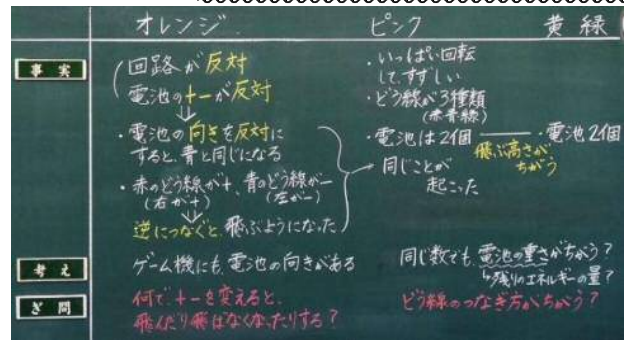 オレンジ ピンク 黄緑
事実
回路が反対
電池の+-が反対
・電池の向きを反対に
すると、青と同じになる
・赤のどう線が+、青のどう線が-
(右が+) (左が-)
逆につなぐと、飛ぶようになった
・いっぱい回転
して、すずしい
・どう線が3種類
(赤青緑)
・電池は2個 ・電池2個
飛ぶ高さが
ちがう
同じことが
起こった
考え
ゲーム機にも、電池の向きがある
同じ数でも、電池の重さがちがう?
↳残りのエネルギーの量?
ぎ問
何で+-を変えると、
飛んだり飛ばなくなったりする?
どう線のつなぎ方がちがう?